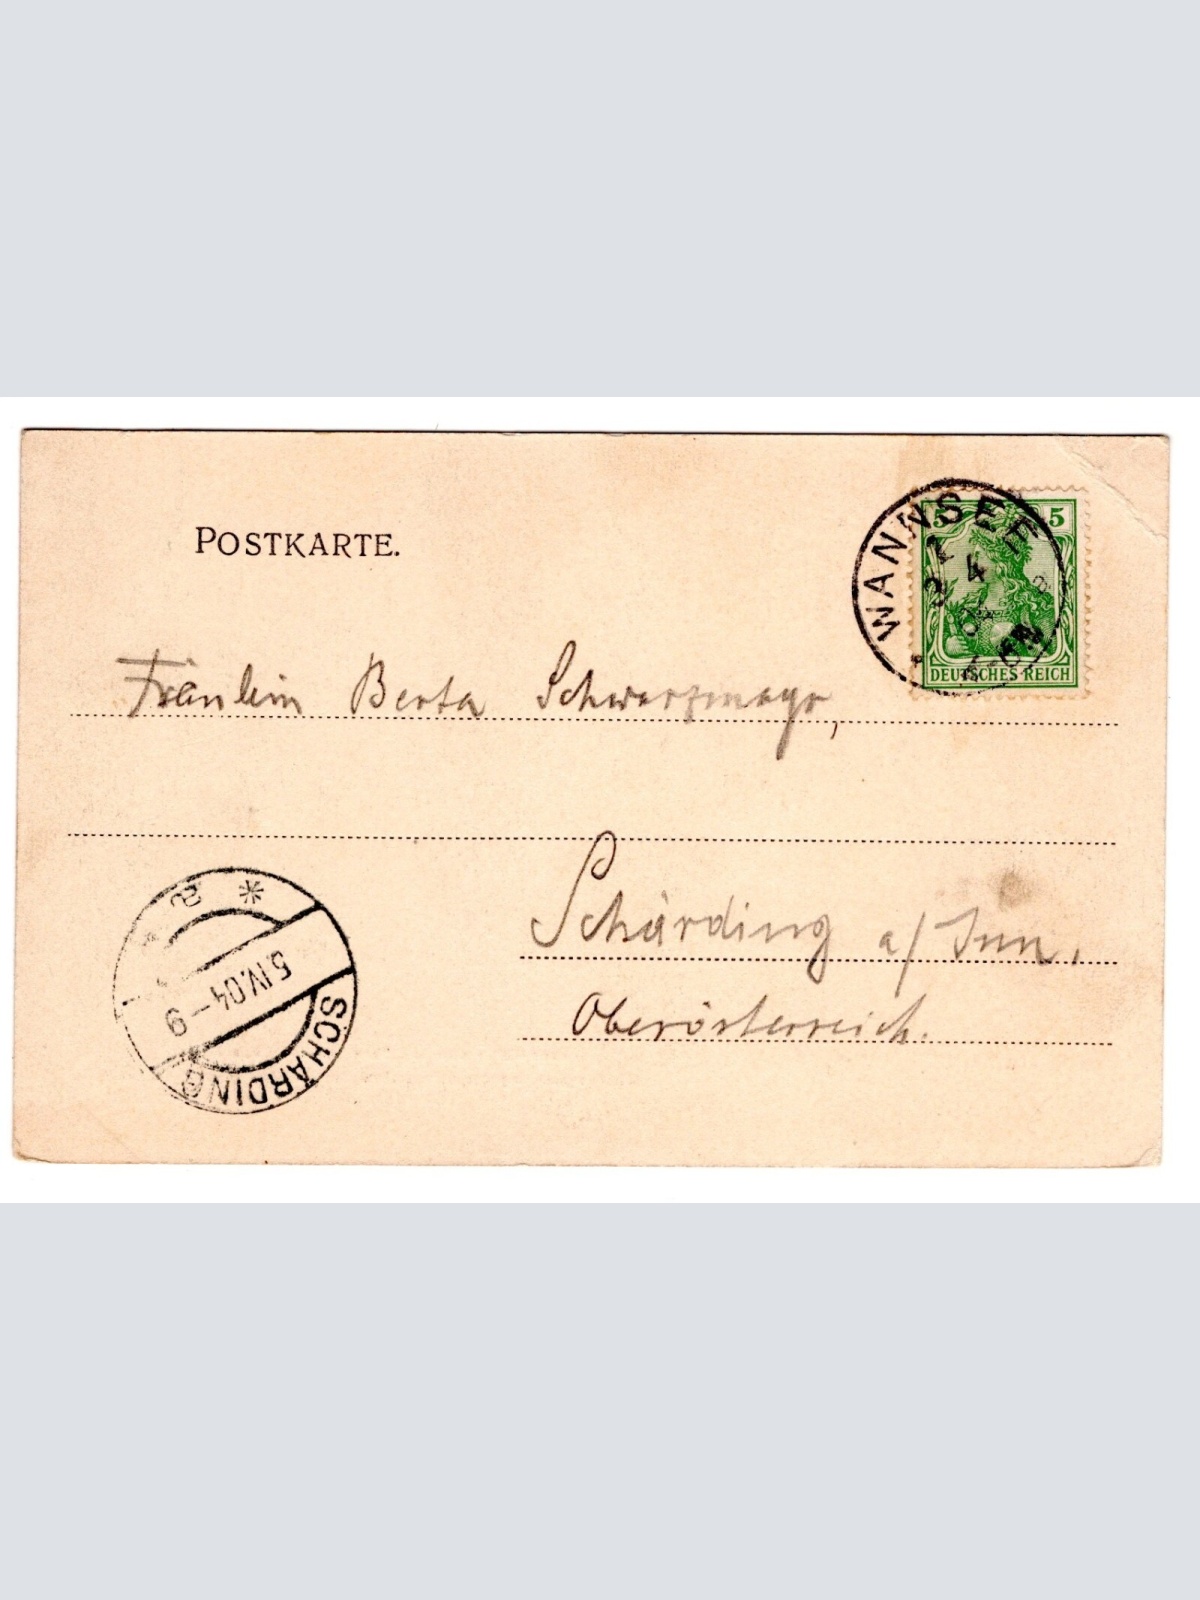 POSTKARTE.
WANNSEE
4
5 5
DEUTSCHES REICH
Fräulein Berta Schwarzmayr,
Schärding a/Inn.
Oberösterreich.
5.IV.04-9
SCHÄRDING